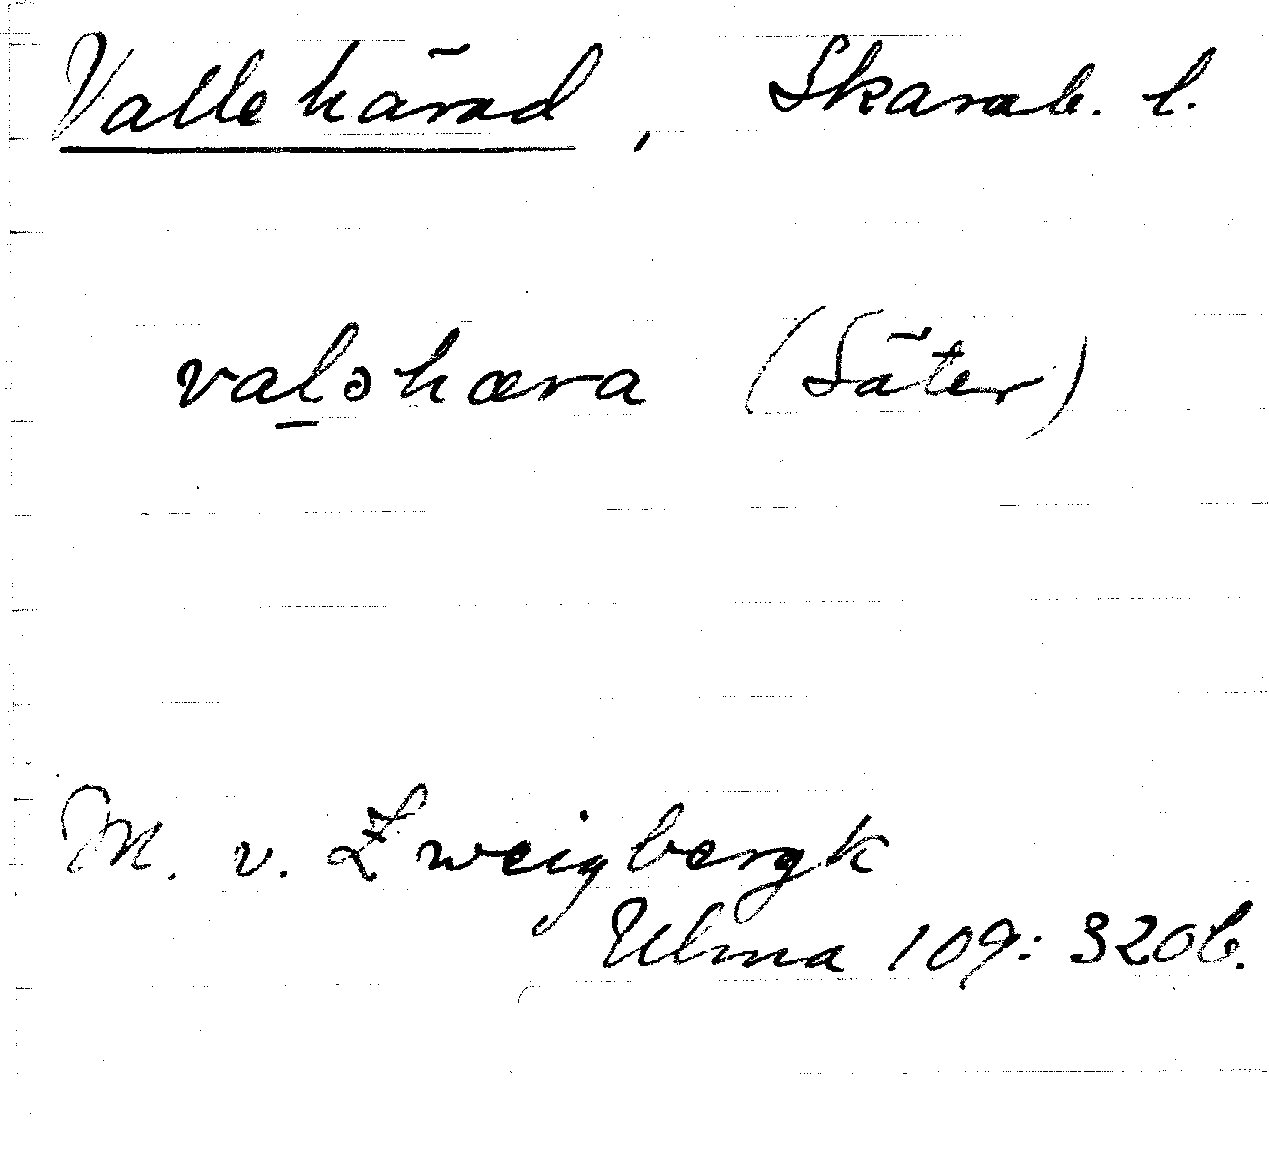 Valle härad, Skarab. l.
val̲ɔhæra (Säter)
M. v. Zweigbergk
Ulma 109: 320b.